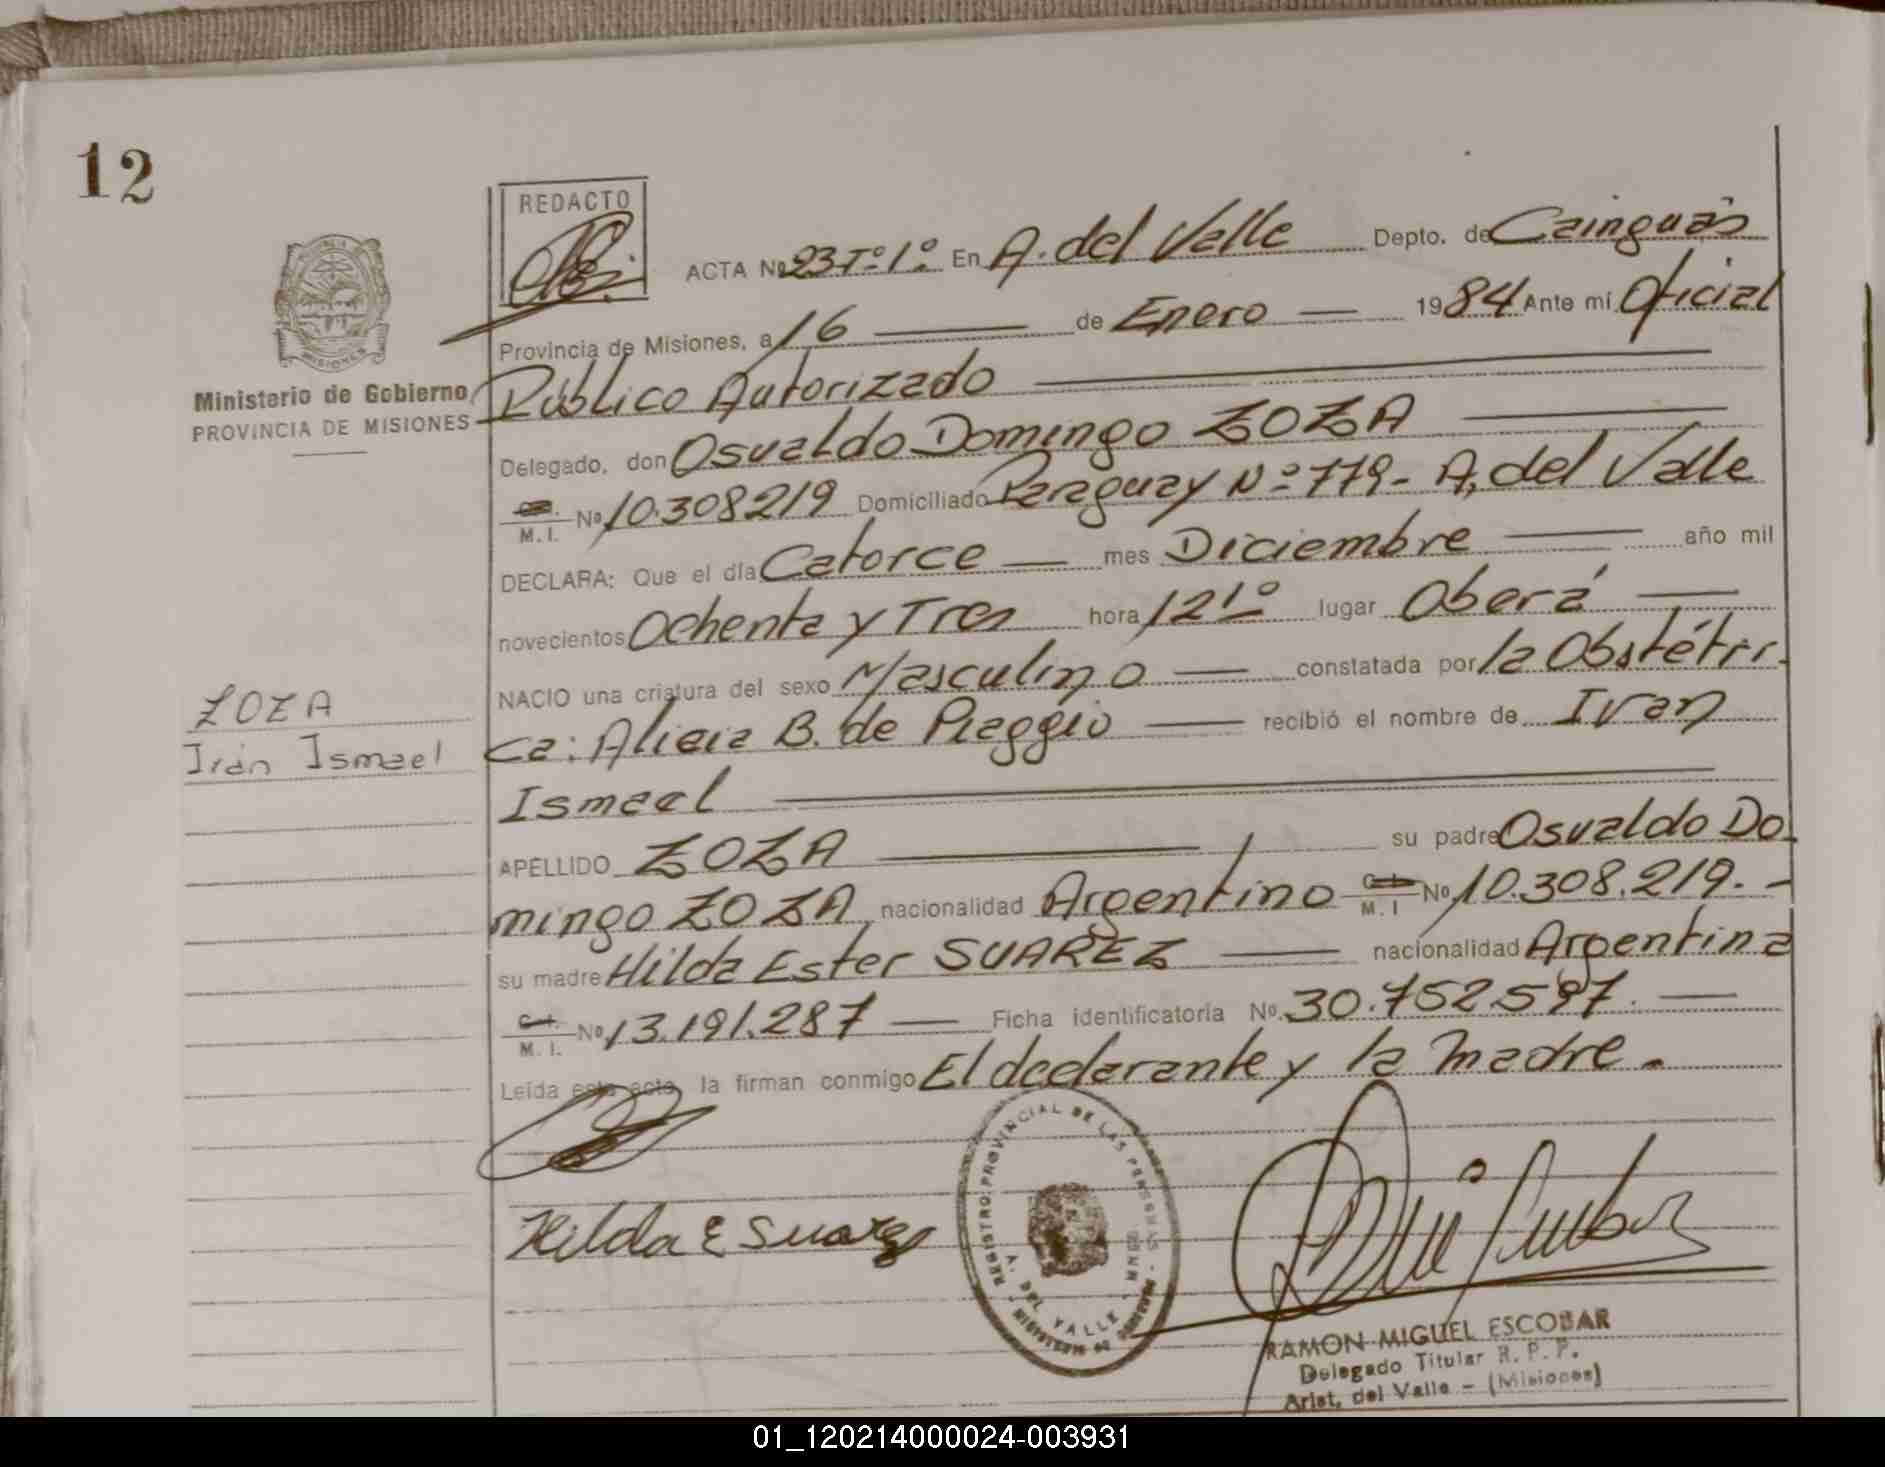 12
REDACTO
ACTA Nº 23 Tº 1º En A. del Valle Depto. de Cainguás
Provincia de Misiones, a 16 de Enero 1984 Ante mí Oficial
Ministerio de Gobierno
PROVINCIA DE MISIONES
Público Autorizado
Delegado, don Osvaldo Domingo ZOZA
M. I. Nº 10.308219 Domiciliado Paraguay Nº 779- A, del Valle
DECLARA: Que el día Catorce mes Diciembre año mil
novecientos Ochenta y Tres hora 12 1º lugar Oberá
NACIO una criatura del sexo Masculino constatada por la Obstétri-
ca: Alicia B. de Piaggio recibió el nombre de Ivan
Ismael
ZOZA
Iván Ismael
APELLIDO ZOZA su padre Osvaldo Do-
mingo ZOZA nacionalidad Argentino C. I. M. I Nº 10.308.219.-
su madre Hilda Ester SUAREZ nacionalidad Argentina
C. I. M. I. Nº 13.191.287 Ficha identificatoria Nº 30.752597.
Leída esta acta, la firman conmigo El declarante y la madre.
REGISTRO PROVINCIAL DE LAS PERSONAS
A. DEL VALLE - MNES.
Hilda E Suarez
RAMON MIGUEL ESCOBAR
Delegado Titular R. P. P.
Arist. del Valle - (Misiones)
01_120214000024-003931